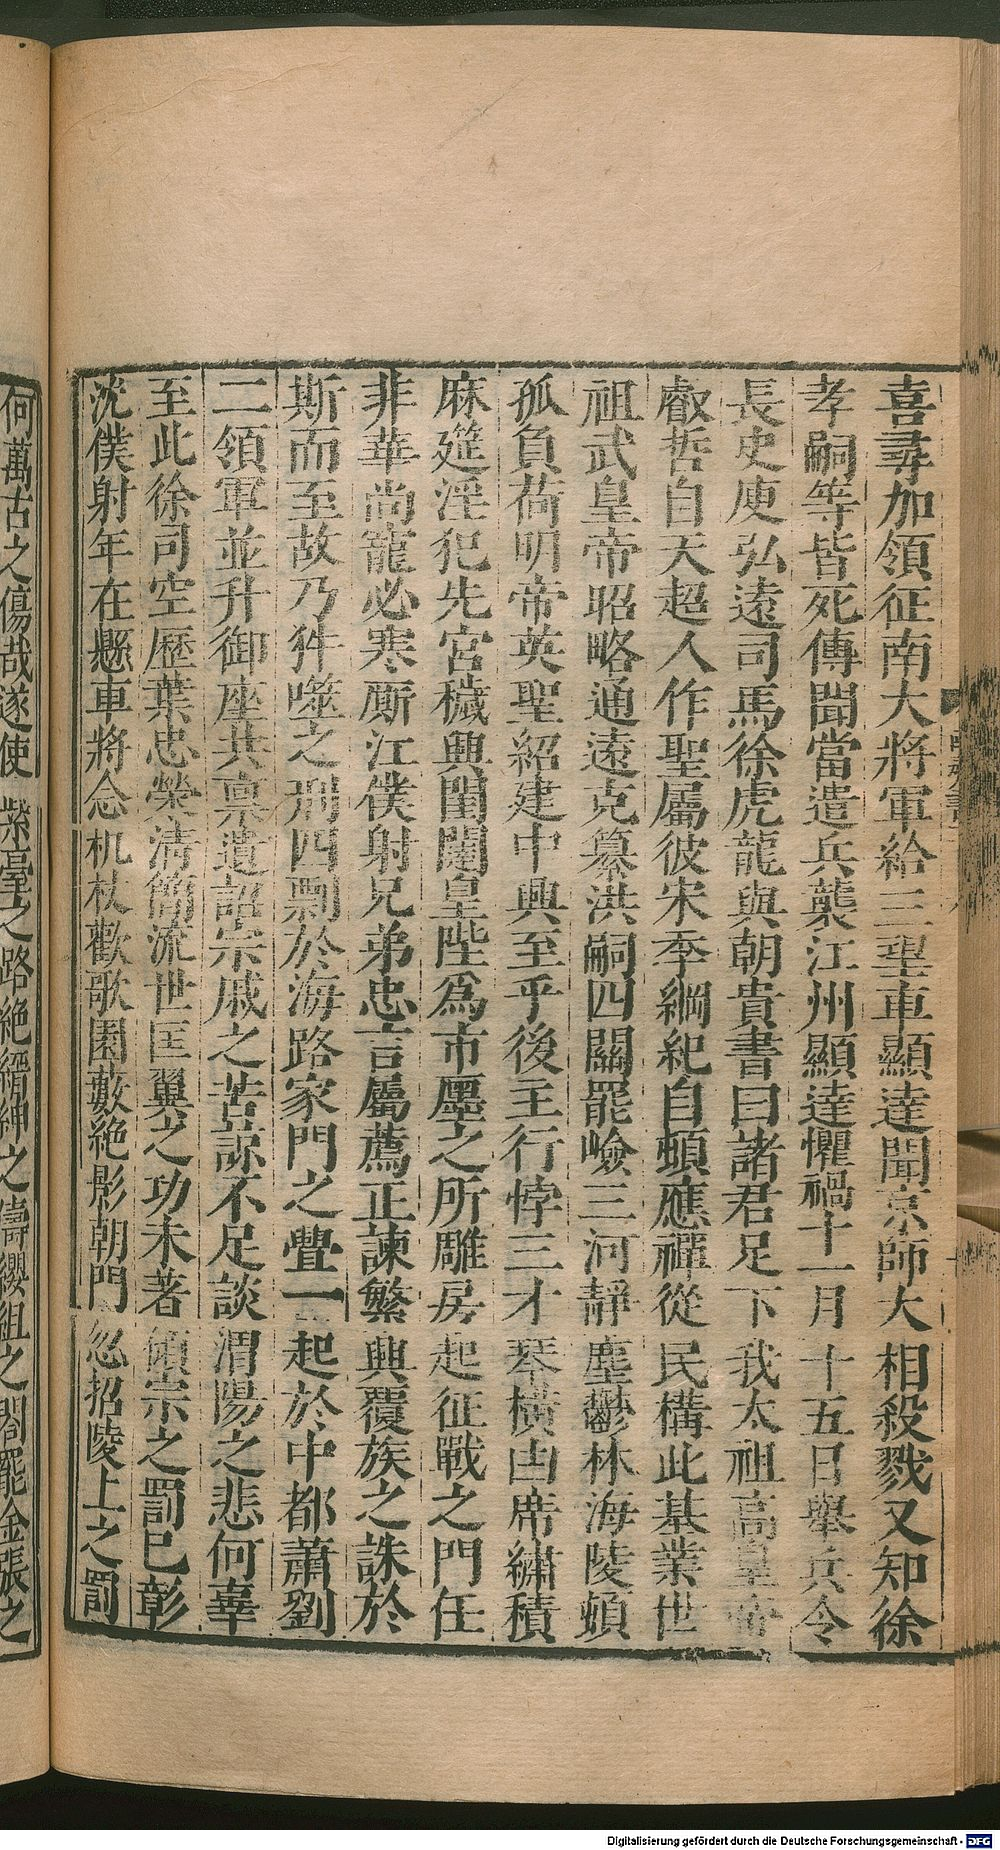 喜尋加領征南大將軍給三望車顯達聞京師大相殺戮又知徐
孝嗣等皆死傳聞當遣兵襲江州顯達懼禍十一月十五日舉兵令
長史庾弘遠司馬徐虎龍與朝貴書曰諸君足下我太祖高皇帝
叡哲自天超人作聖屬彼宋季綱紀自頓應禪從民構此基業世
祖武皇帝昭略通遠克纂洪嗣四關罷嶮三河靜塵鬱林海陵頓
孤負荷明帝英聖紹建中興至乎後主行悖三才琴橫由席繡積
麻筵淫犯先宮穢興閨闥皇陛爲市廛之所雕房起征戰之門任
非華尚寵必寒厮江僕射兄弟忠言屬薦正諫繁興覆族之誅於
斯而至故乃犴噬之刑四剽於海路家門之舋一起於中都蕭劉
二領軍並升御座共禀遺詔宗戚之苦諒不足談渭陽之悲何辜
至此徐司空歷葉忠榮清簡流世匡翼之功未著傾宗之罰已彰
沈僕射年在懸車將念机杖歡歌園藪絶影朝門忽招陵上之罰
何萬古之傷哉遂使紫臺之路絶縉紳之儔纓組之閣罷金張之
Digitalisierung gefördert durch die Deutsche Forschungsgemeinschaft - DFG